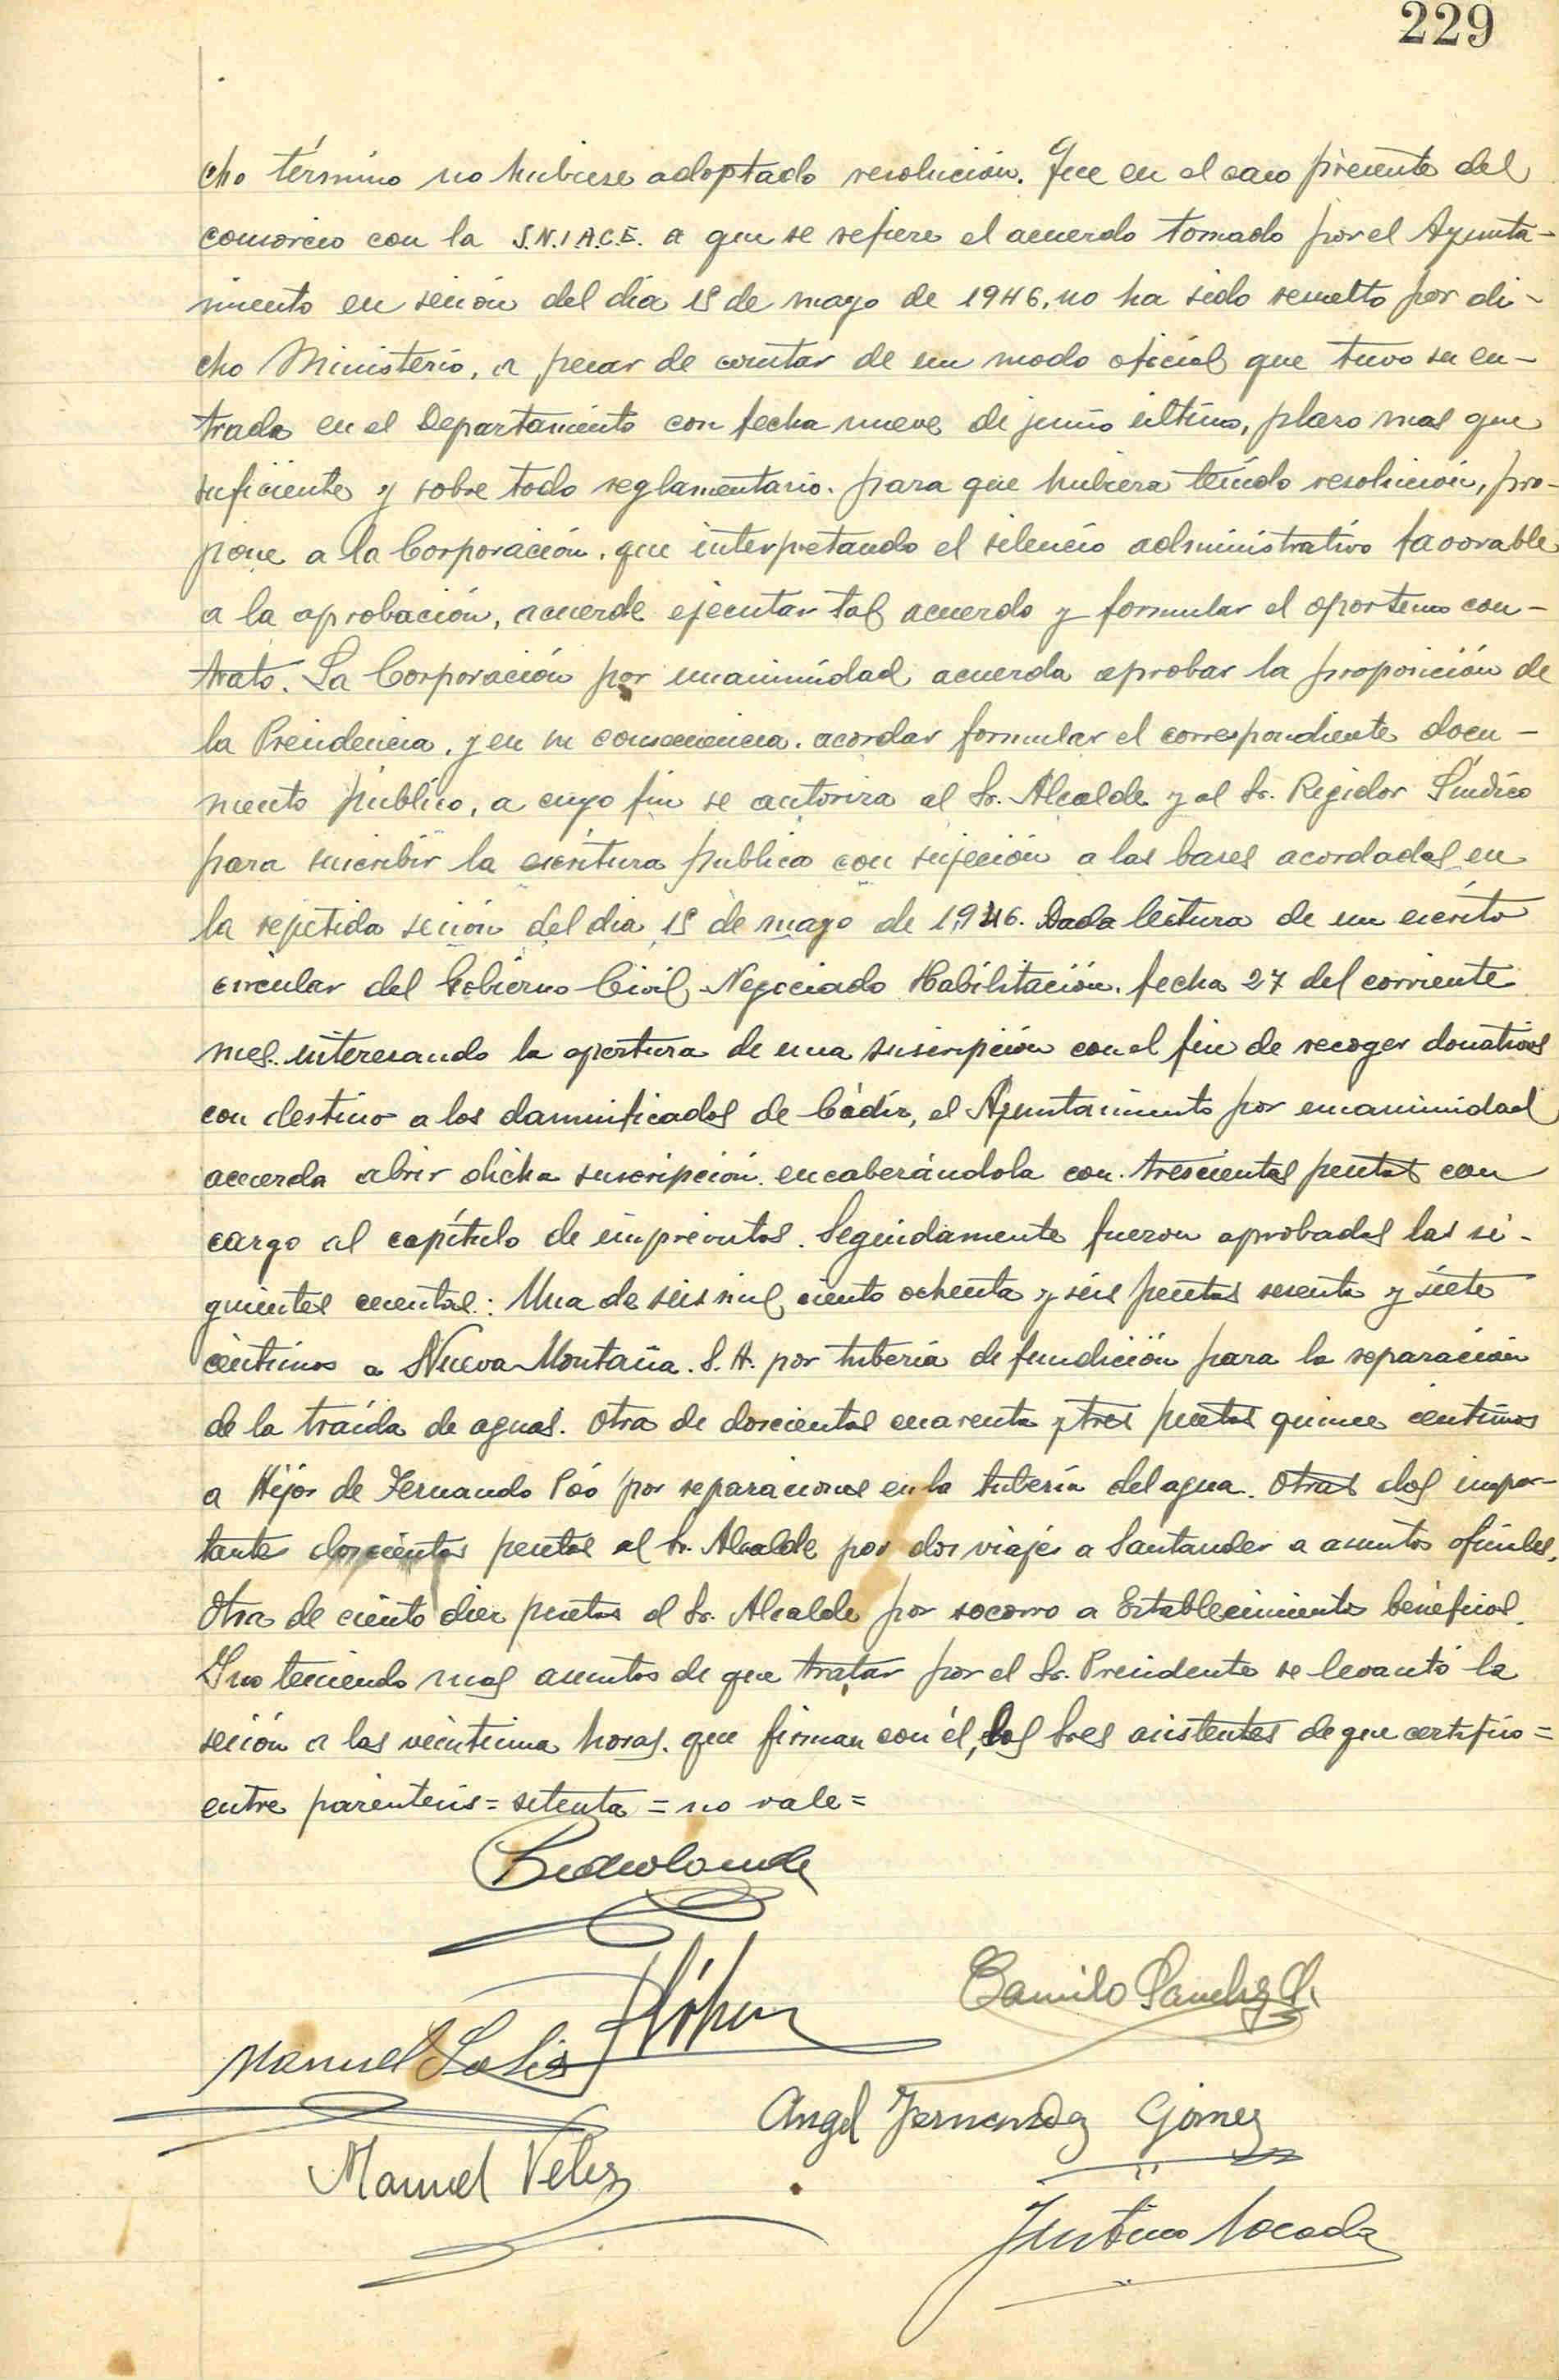 229
cho término no hubiese adoptado resolución. Que en el caso presente del
consorcio con la S.N.I.A.C.E. a que se refiere el acuerdo tomado por el Ayunta-
miento en sesión del día 15 de mayo de 1946, no ha sido resuelto por di-
cho Ministerio, a pesar de constar de un modo oficial que tuvo su en-
trada en el Departamento con fecha nueve de junio último, plazo mas que
suficiente y sobre todo reglamentario. para que hubiera tenido resolución, pro-
pone a la Corporación, que interpretando el silencio administrativo favorable
a la aprobación, acuerde ejecutar tal acuerdo y formular el oportuno con-
trato. La Corporación por unanimidad acuerda aprobar la proposición de
la Presidencia, y en su consecuencia. acordar formular el correspondiente docu-
mento público, a cuyo fin se autoriza al Sr. Alcalde y al Sr. Regidor Síndico
para suscribir la escritura publica con sujeción a las bases acordadas en
la repetida sesión del dia 15 de mayo de 1,946. Dada lectura de un escrito
circular del Gobierno Civil, Negociado Habilitación. fecha 27 del corriente
mes. interesando la apertura de una suscripción con el fin de recoger donativos
con destino a los damnificados de Cádiz, el Ayuntamiento por unanimidad
acuerda abrir dicha suscripción. encabezándola con. trescientas pesetas con
cargo al capítulo de imprevistos. Seguidamente fueron aprobadas las si-
guientes cuentas: Una de seis mil, ciento ochenta y seis pesetas sesenta y siete
céntimos a Nueva Montaña. S.A. por tubería de fundición para la reparación
de la traída de aguas. Otra de doscientas cuarenta y tres pesetas quince centimos
a Hijos de Fernando Póo por reparaciones en la tubería del agua. Otras dos impor-
tante doscientas pesetas al Sr. Alcalde por dos viajes a Santander a asuntos oficiales.
Otra de ciento diez pesetas al Sr. Alcalde por socorro a Establecimiento benéficos.
Y no teniendo mas asuntos de que tratar por el Sr. Presidente se levantó la
sesión a las veintiuna horas. que firman con él, los Sres asistentes de que certifico=
entre paréntesis= setenta = no vale=
López
Camilo Sanchez
Manuel Solis
Angel Fernandez Gómez
Manuel Velez